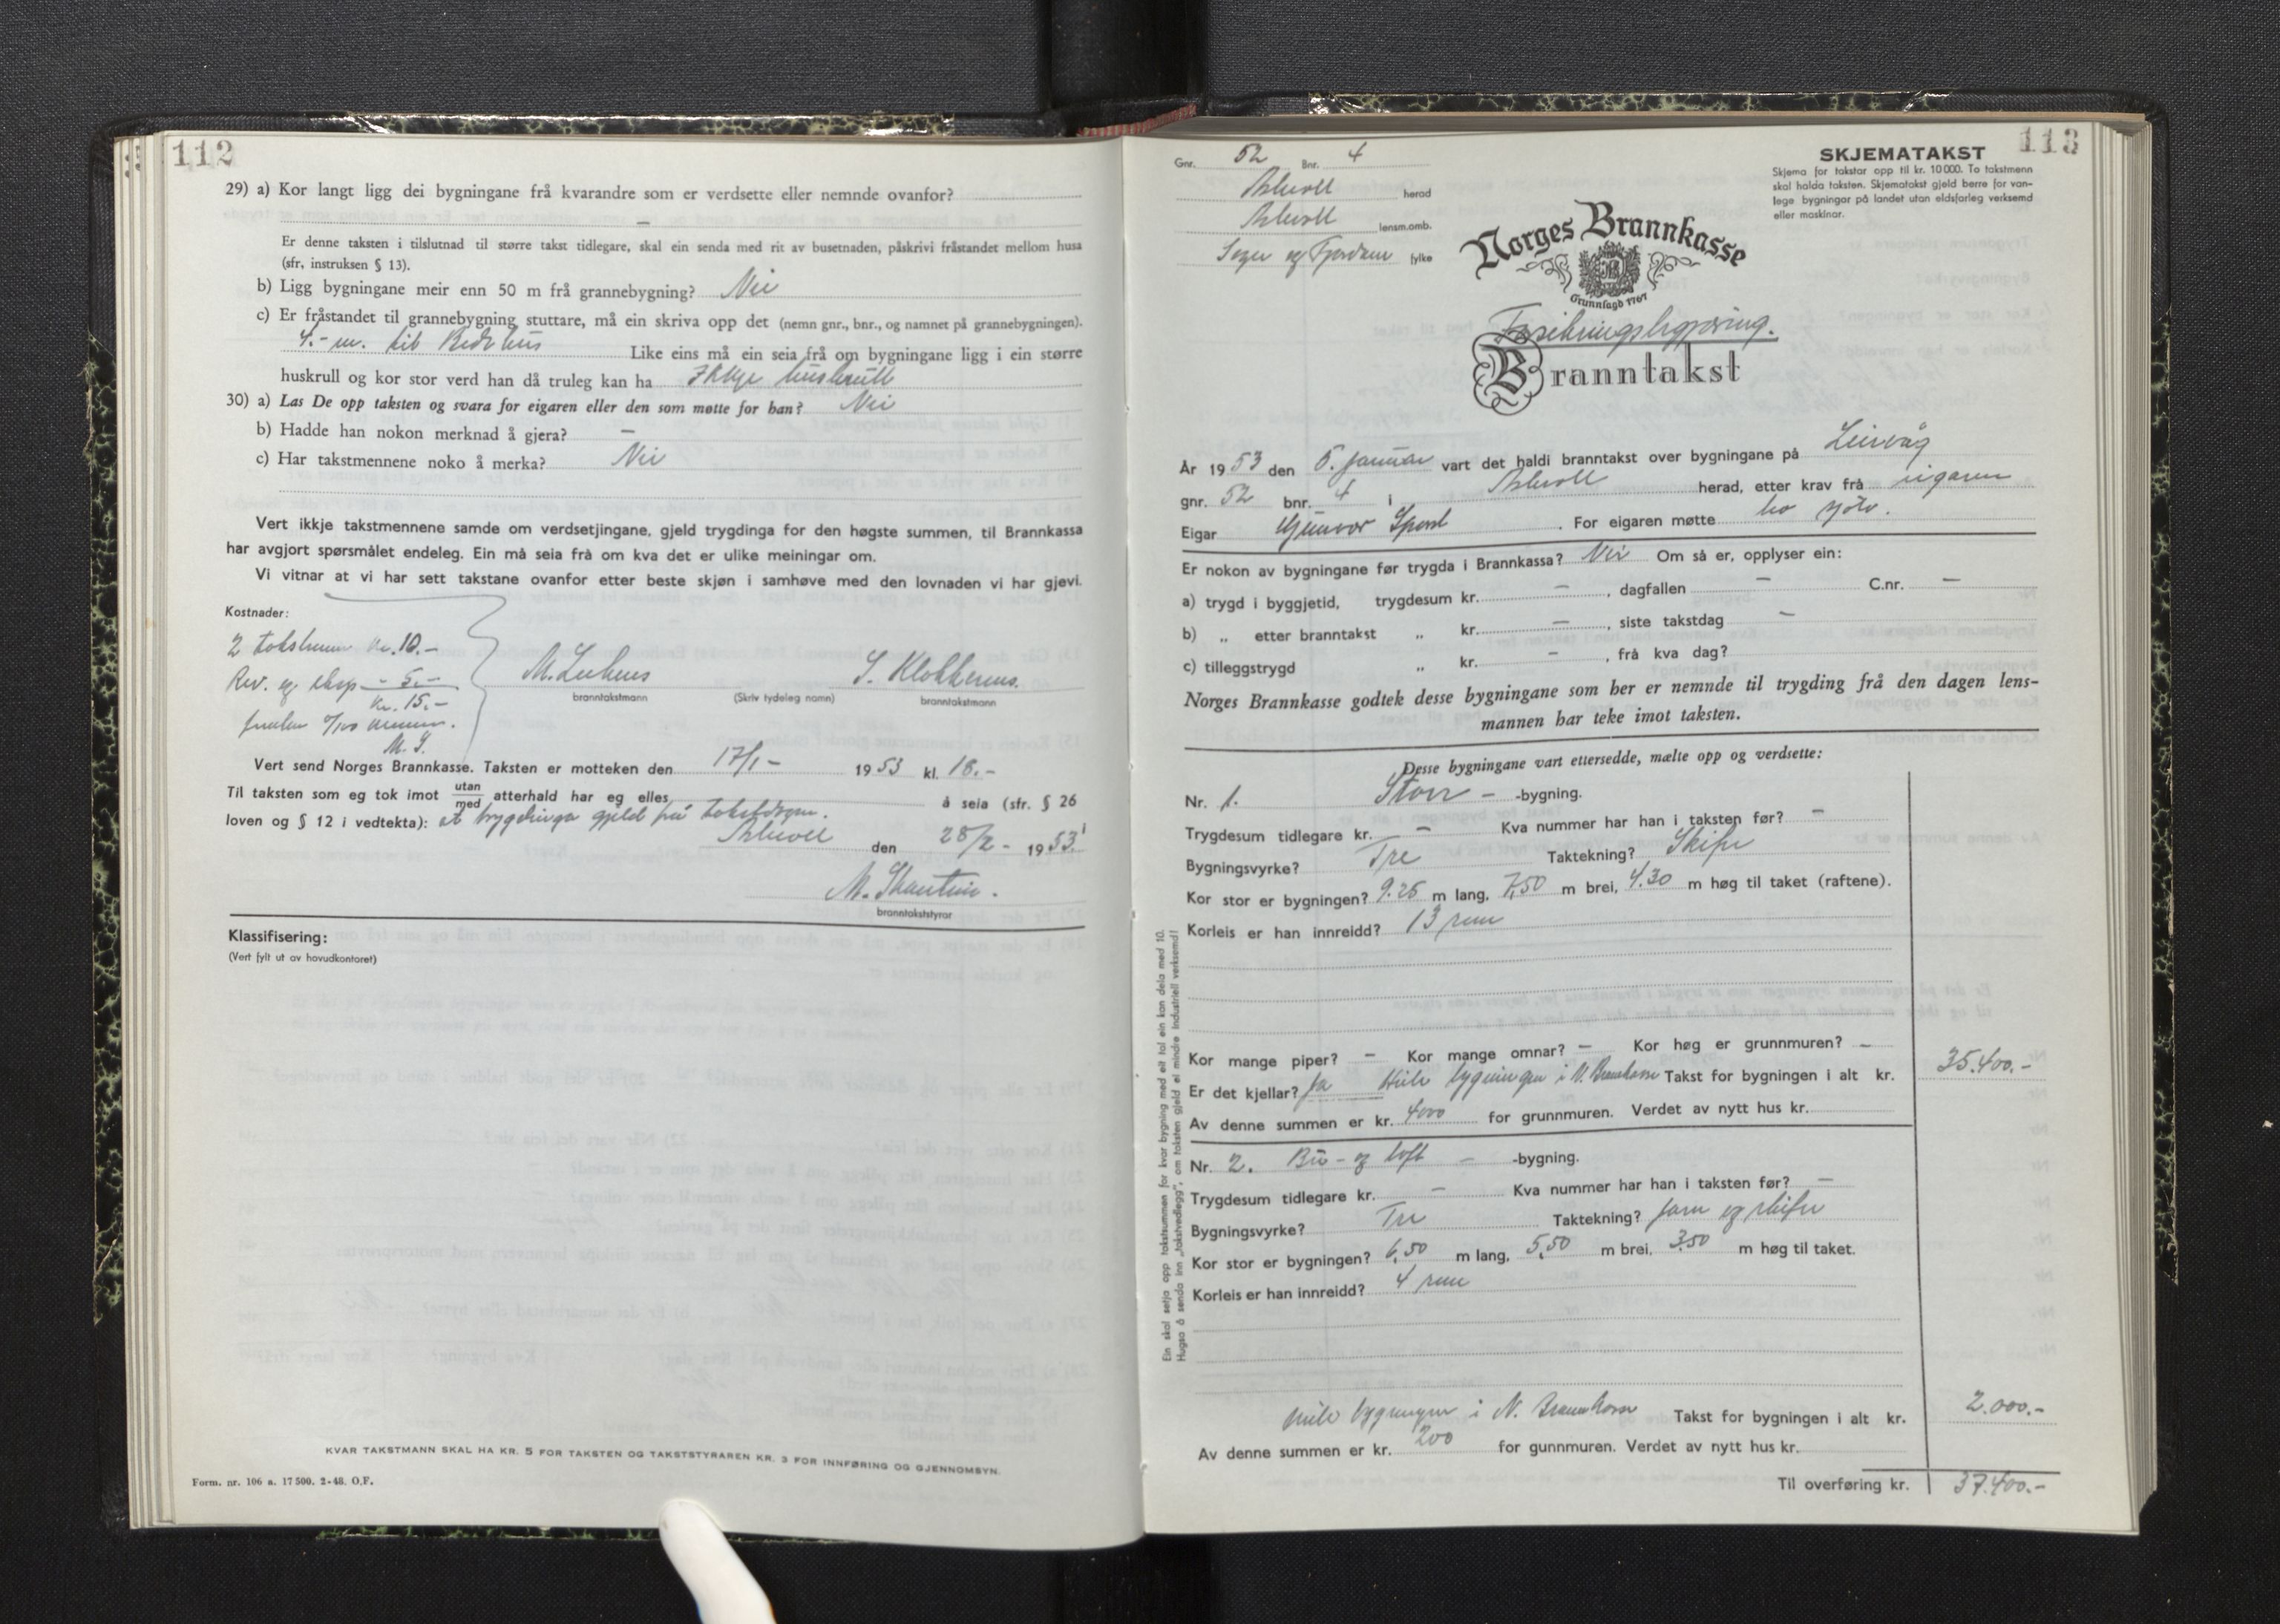 112
29) a) Kor langt ligg dei bygningane frå kvarandre som er verdsette eller nemnde ovanfor?
—
Er denne taksten i tilslutnad til større takst tidlegare, skal ein senda med rit av busetnaden, påskrivi fråstandet mellom husa
(sfr. instruksen § 13).
b) Ligg bygningane meir enn 50 m frå grannebygning? Nei
c) Er fråstandet til grannebygning stuttare, må ein skriva opp det (nemn gnr., bnr., og namnet på grannebygningen).
4.- m. til Bedehus Like eins må ein seia frå om bygningane ligg i ein større
huskrull og kor stor verd han då truleg kan ha Ikkje huskrull
30) a) Las De opp taksten og svara for eigaren eller den som møtte for han? Nei
b) Hadde han nokon merknad å gjera? —
c) Har takstmennene noko å merka? Nei
Vert ikkje takstmennene samde om verdsetjingane, gjeld trygdinga for den høgste summen, til Brannkassa
har avgjort spørsmålet endeleg. Ein må seia frå om kva det er ulike meiningar om.
Vi vitnar at vi har sett takstane ovanfor etter beste skjøn i samhøve med den lovnaden vi har gjevi.
Kostnader:
2 takstmenn kr. 10.-
Rev. og eksp - 5.-
kr. 15.-
M. S.
M. S. Klokkernes.
branntakstmann (Skriv tydeleg namn) branntakstmann
Vert send Norges Brannkasse. Taksten er motteken den 17/1- 1953 kl. 18.-
Til taksten som eg tok imot utan/med atterhald har eg elles å seia (sfr. § 26
loven og § 12 i vedtekta): at trygdinga gjeld frå takstdagen.
Askvoll den 28/2- 1953
M.
branntakststyrar
Klassifisering:
(Vert fylt ut av hovudkontoret)
KVAR TAKSTMANN SKAL HA KR. 5 FOR TAKSTEN OG TAKSTSTYRAREN KR. 3 FOR INNFØRING OG GJENNOMSYN.
Form. nr. 106 a. 17 500. 2-48. O.F.
113
Gnr. 52 Bnr. 4
Askvoll herad
Askvoll lensm.omb.
Sogn og Fjordane fylke
SKJEMATAKST
Skjema for takstar opp til kr. 10 000. To takstmenn
skal halda taksten. Skjematakst gjeld berre for van-
lege bygningar på landet utan eldsfarleg verksemd
eller maskinar.
Norges Brannkasse
Grunnlagd 1767
Forsikringsbegjæring.
Branntakst
År 1953 den 6. januar vart det haldi branntakst over bygningane på Leirvåg
gnr. 52 bnr. 4 i Askvoll herad, etter krav frå eigaren
Eigar Gunvor . For eigaren møtte ho sjølv.
Er nokon av bygningane før trygda i Brannkassa? Nei Om så er, opplyser ein:
a) trygd i byggjetid, trygdesum kr. — , dagfallen — C.nr. —
b) „ etter branntakst „ kr. — , siste takstdag —
c) tilleggstrygd „ kr. — , frå kva dag?
Norges Brannkasse godtek desse bygningane som her er nemnde til trygding frå den dagen lens-
mannen har teke imot taksten.
Desse bygningane vart ettersedde, mælte opp og verdsette:
Nr. 1. -bygning.
Trygdesum tidlegare kr. — Kva nummer har han i taksten før? —
Bygningsvyrke? Tre Taktekning? Skifer
Kor stor er bygningen? 9.25 m lang, 7,50 m brei, 4.30 m høg til taket (raftene).
Korleis er han innreidd? 13 rum
Kor mange piper? — Kor mange omnar? — Kor høg er grunnmuren? —
Er det kjellar? Ja Heile bygningen i N. Brannkasse Takst for bygningen i alt kr. 35.400.-
Av denne summen er kr. 4000 for grunnmuren. Verdet av nytt hus kr.
Nr. 2. Bu- og loft — -bygning.
Trygdesum tidlegare kr. — Kva nummer har han i taksten før? —
Bygningsvyrke? Tre Taktekning? Jarn og skifer
Kor stor er bygningen? 6,50 m lang, 5,50 m brei, 3,50 m høg til taket.
Korleis er han innreidd? 4 rum
Heile bygningen i N. Brannkasse Takst for bygningen i alt kr. 2.000.-
Av denne summen er kr. 200 for gunnmuren. Verdet av nytt hus kr.
Til overføring kr. 37.400.-
Ein skal setja opp takstsummen for kvar bygning med eit tal ein kan dela med 10.
Hugsa å senda inn „takstvedlegg", om taksten gjeld ei mindre industriell verksemd!